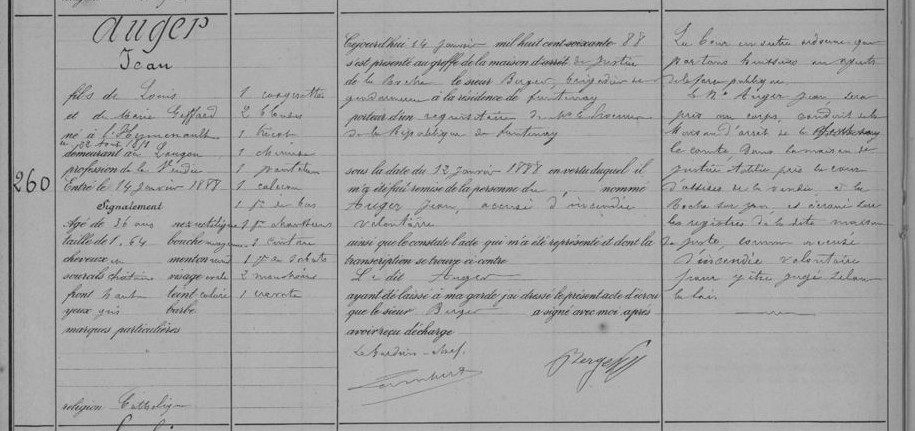 260
Auger
Jean
fils de Louis
et de Marie Giffard
né à l'Hermenault
le 22 août 1851
demeurant à Longeu
profession de la Vendée
Entré le 14 janvier 1888
Signalement
Agé de 36 ans nez rectiligne
taille de 1, 64 bouche moyenne
cheveux menton rond
sourcils châtains visage ovale
front haut teint coloré
yeux gris barbe
marques particulières
religion Catholique
1 casquette
2 blouses
1 tricot
1 chemise
1 pantalon
1 caleçon
1 pre de bas
1 pre
1 ceinture
1 pre de sabots
2 mouchoirs
1 cravate
Aujourd'hui 14 Janvier mil huit cent soixante 88
s'est présenté au greffe de la maison d'arrêt de justice
de la Roche le sieur Berger, brigadier de
gendarmerie à la résidence de Fontenay
porteur d'un réquisitoire de Mr le Procureur
de la République de Fontenay
sous la date du 12 Janvier 1888 en vertu duquel il
m'a été fait remise de la personne du nommé
Auger Jean, accusé d'incendie
volontaire
ainsi que le constate l'acte qui m'a été représenté et dont la
transcription se trouve ci-contre
Le dit Auger
ayant été laissé à ma garde j'ai dressé le présent acte d'écrou
que le sieur Berger a signé avec moi après
avoir reçu décharge
Le Gardien-chef
Berger
La Cour en outre ordonne que
par tous huissiers ou agents
de la force publique
Le Né Auger Jean, sera
pris au corps, conduit de la
Maison d'arrêt de
le comte dans la maison de
justice établie près la cour
d'assises de la Vendée, à la
Roche sur yon, et écroué sur
les registres de la dite maison
de justice, comme accusé
d'incendie volontaire
pour y être jugé selon
la loi.